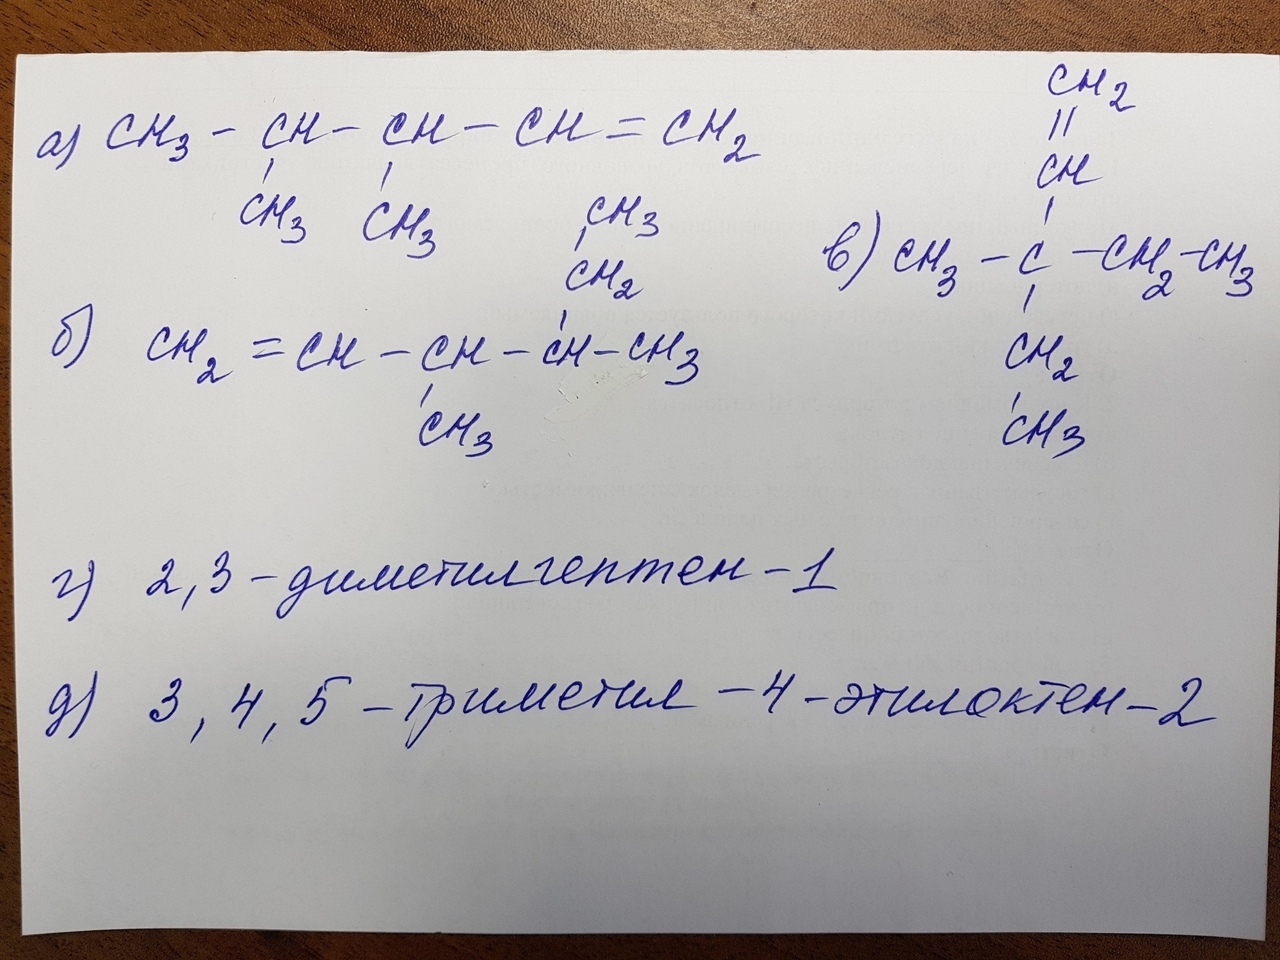 а) CH3 – CH – CH – CH = CH2
CH3 CH3
б) CH2 = CH – CH – CH – CH3
CH3
CH2
CH3
в) CH3 – C – CH2 – CH3
CH2
=
CH
CH2
CH3
г) 2,3 – диметилгептен – 1
д) 3, 4, 5 – триметил – 4 – этилоктен – 2